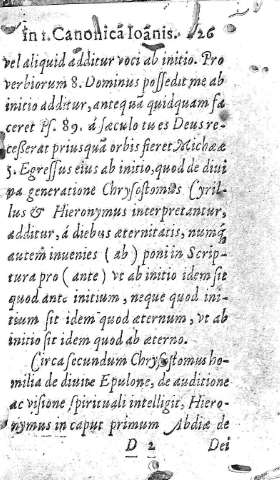 In 1. Canonicã Ioãnis. 26
vel aliquid additur voci ab initio. Pro
verbiorum 8. Dominus possedit me ab
initio additur, antequã quidquam fa
ceret Ps. 89. á sæculo tu es Deus re-
cesserat priusquã orbis fieret Michææ
5. Egressus eius ab initio, quod de divi
na generatione Chrysostomus Cyril-
lus & Hieronymus interpretantur,
additur, á diebus æternitatis, numq̃
autem invenies (ab) poni in Scrip-
tura pro (ante) vt ab initio idem sit
quod ante initium, neque quod ini-
tium sit idem quod æternum, vt ab
initio sit idem quod ab æterno.
Circa secundum Chrysostomus ho-
milia de divite Epulone, de auditione
ac visione spirituali intelligit, Hiero-
nymus in caput primum Abdiæ de
D 2 Dei